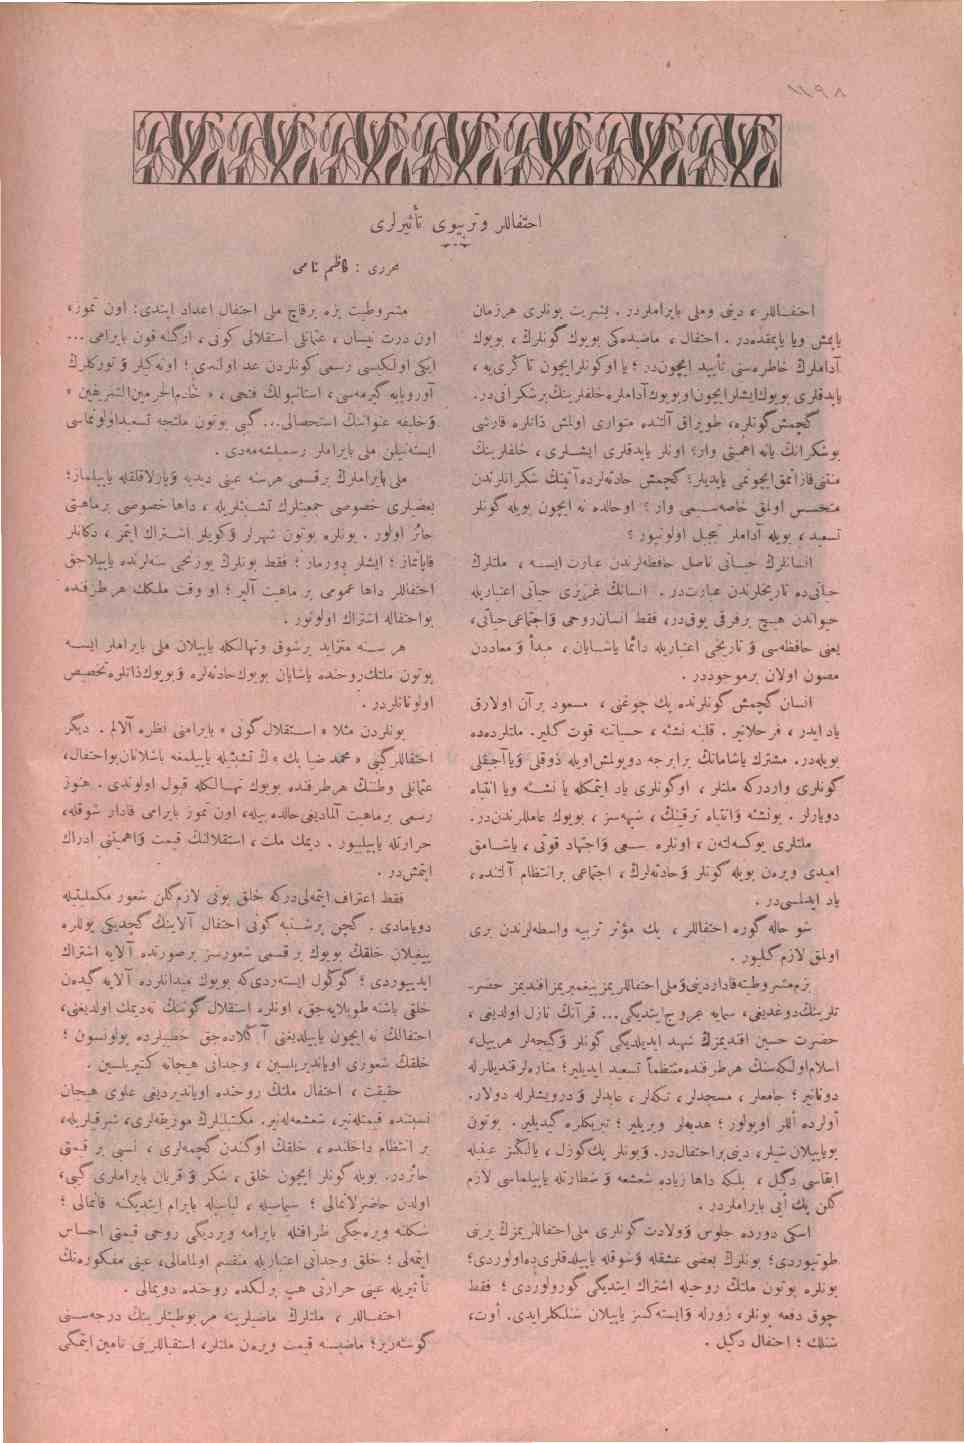 ١١٩٨
احتفاللر و تربيوی تأثيرلری
محرری : كاظم نامی
احتفاللر ، دينی و ملی بايراملردر . بشريت بونلری هر زمان
ياپمش ويا ياپمقده‌در . احتفال ، ماضيده‌كی بويوك كونلرڭ ، بويوك
آداملرڭ خاطره‌سنی تأييد ايچون‌در ؛ يا او كونلر ايچون تاڭری‌يه ،
ياپدقلری بويوك ايشلر ايچون او بويوك آداملره خلفلرينڭ بر شكرانی‌در.
گچمش گونلره، طوپراق آلتنده متواری اولمش ذاتلره قارشی
بو شكرانڭ يا نه اهميتی وار؟ اونلر ياپدقلری ايشلری ، خلفلرينڭ
منتنی قازانمق ايچونمی ياپديلر؟ گچمش حادثه‌لرده آتينڭ شكرانلرندن
متحسس اولمق خاصه‌سی می وار ؟ او حالده نه ايچون بويله گونلر
تسعيد ، بويله آداملر تبجيل اولونيور ؟
انسانلرڭ حياتی ناصل حافظه‌لرندن عبارت ايسه ، ملتلرڭ
حياتی ده تاريخلرندن عبارت‌در . انسانڭ غريزی حياتی اعتباريله
حيواندن هيچ بر فرقی يوق‌در، فقط انسان روحی و اجتماعی حياتی،
يعنی حافظه‌سی و تاريخی اعتباريله دائما ياشايان ، مبدأ و معاددن
مصون اولان بر موجوددر .
انسان گچمش گونلرنده پك چوغنی ، مسعود بر آن اولارق
ياد ايدر ، فرحلانير . قلبنه نشئه ، حساتنه قوت گلير. ملتلرده‌ده
بويله‌در. مشترك ياشامانڭ برابرجه دويولمش اويله ذوقلی ويا آجيقلی
گونلری واردركه ملتلر ، او گونلری ياد ايتمكله يا نشئه ويا انتباه
دويارلر. بو نشئه و انتباه ترقينڭ ، شبهه‌سز ، بويوك عامللرندن‌در.
ملتلری يوكسه‌لتن ، اونلره سعی و اجتهاد قوتی ، ياشامق
اميدی ويرن بويله گونلر و حادثه‌لرڭ ، اجتماعی بر انتظام آلتنده ،
ياد ايدلمسی‌در .
شو حاله گوره احتفاللر ، پك مؤثر تربيه واسطه‌لرندن بری
اولمق لازم گليور .
بزم مشروطيته قادار دينی و ملی احتفاللريمز پيغمبريمز افنديمز حضر-
تلرينڭ دوغديغی، سمايه عروج ايتديگی... قرآنڭ نازل اولديغی ،
حضرت حسين افنديمزڭ شهيد ايديلديگی گونلر و گيجه‌لر هر ييل،
اسلام اولكه‌سنڭ هر طرفنده منتظماً تسعيد ايديلير؛ مناره‌لر قنديللرله
دوناتير؛ جامعلر ، مسجدلر ، تكه‌لر ، عابدلر و درويشلرله دولار.
اولرده اللر اوپولور ؛ هديه‌لر ويريلير ؛ تبريكلره گيديلير. بوتون
بو ياپيلان شيلر، دينی بر احتفال‌در. و بونلر پك گوزل ، يالڭز عينيله
ابقاسی دگيل ، بلكه داها زياده شعشعه و شطارتله ياپيلماسی لازم
گلن پك ايی بايراملردر .
اسكی دورده جلوس و ولادت گونلری ملی احتفاللريمزڭ يرينی
طوتيوردی؛ بونلرڭ بعضی عشقله و شوقله ياپيلدقلری ده اولوردی؛
بونلره بوتون ملتڭ روحيله اشتراك ايتديگی گورولوردی ؛ فقط
چوق دفعه بونلر، زورله و ايسته‌كسز ياپيلان شنلكلر ايدی. اوت،
شنلك ؛ احتفال دگيل .
مشروطيت بزه برقاچ ملی احتفال اعداد ايتدی: اون تموز،
اون درت نيسان ، عثمانلی استقلالی گونی ، ارگنه قون بايرامی ...
ايكی اولكيسی رسمی گونلردن عد اولندی ؛ اوته‌كيلر و توركلرڭ
آوروپايه گيرمه‌سی ، استانبولڭ فتحی ، « خادم‌الحرمين‌الشريفين »
و خليفه عنواننڭ استحصالی... گبی بوتون ملتجه تسعيد اولونماسی
ايسته‌نيلن ملی بايراملر رسميلشمه‌دی .
ملی بايراملرڭ بر قسمی هر سنه عينی دبدبه و پارلاقلقله ياپيلماز؛
بعضلری خصوصی جمعيتلرڭ تشبثلريله ، داها خصوصی بر ماهيتی
حائز اولور . بونلره بوتون شهرلر و كويلر اشتراك ايتمز ، دكانلر
قاپانماز ؛ ايشلر دورماز ؛ فقط بونلرڭ يوزنجی سنه‌لرنده ياپيلاجق
احتفاللر داها عمومی بر ماهيت آلير ؛ او وقت ملكڭ هر طرفنده
بو احتفاله اشتراك اولونور .
هر سنه متزايد بر شوق و تهالكله ياپيلان ملی بايراملر ايسه
بوتون ملتڭ روحنده ياشايان بويوك حادثه‌لره و بويوك ذاتلره تخصيص
اولونانلردر .
بونلردن مثلا « استقلال گونی » بايرامنی نظره آلالم . ديگر
احتفاللر گبی « محمد ضيا بك » ڭ تشبثيله ياپيلمغه باشلانان بو احتفال،
عثمانلی وطننڭ هر طرفنده بويوك تهالكله قبول اولوندی . هنوز
رسمی بر ماهيت آلماديغی حالده بيله، اون تموز بايرامی قادار شوقله،
حرارتله ياپيليور . ديمك ملت ، استقلالنڭ قيمت و اهميتنی ادراك
ايتمش‌در .
فقط اعتراف ايتمه‌لی‌دركه خلق بونی لازم گلن شعور مكمليتيله
دويامادی . گچن پرشنبه گونی احتفال آلاينڭ گچديگی يوللره
ييغيلان خلقڭ بويوك بر قسمی شعورسز بر صورتده آلايه اشتراك
ايدييوردی ؛ گوڭول ايستردی كه بويوك ميدانلرده آلايه گيدن
خلقی باشنه طوپلايه‌جق، اونلره استقلال گوننڭ نه ديمك اولديغنی،
احتفالڭ نه ايچون ياپيلديغنی آڭلاده‌جق خطيبلر ده بولونسون ؛
خلقڭ شعوری اوياندريلسين ، وجدانی هيجانه گتيريلسين .
حقيقت ، احتفال ملتڭ روحنده اوياندرديغی علوی هيجان
نسبتنده قيمتله‌نير، شعشعه‌له‌نير. مكتبليلرڭ موزيقه‌لری، شرقيلريله،
بر انتظام داخلنده ، خلقڭ اوڭندن گچمه‌لری ، نسبی بر قيمتی
حائزدر. بويله گونلر ايچون خلق ، شكر و قربان بايراملری گبی ،
اولدن حاضرلانمالی ؛ سيماسيله ، لباسيله بايرام ايتديگنه قانمالی ؛
شكلنه ويره‌جگی ظرافتله بايرامه ويرديگی روحی قيمتی احساس
ايتمه‌لی ؛ خلق وجدانی اعتباريله منقسم اولمامالی، عينی مفكوره‌نڭ
تأثيريله عينی حرارتی هپ برلكده روحنده دويمالی .
احتفاللر ، ملتلرڭ ماضيلرينه مربوطيتلرينڭ درجه‌سنی
گوسته‌رير؛ ماضيسنه قيمت ويرن ملتلر، استقباللرينی تأمين ايتمكی